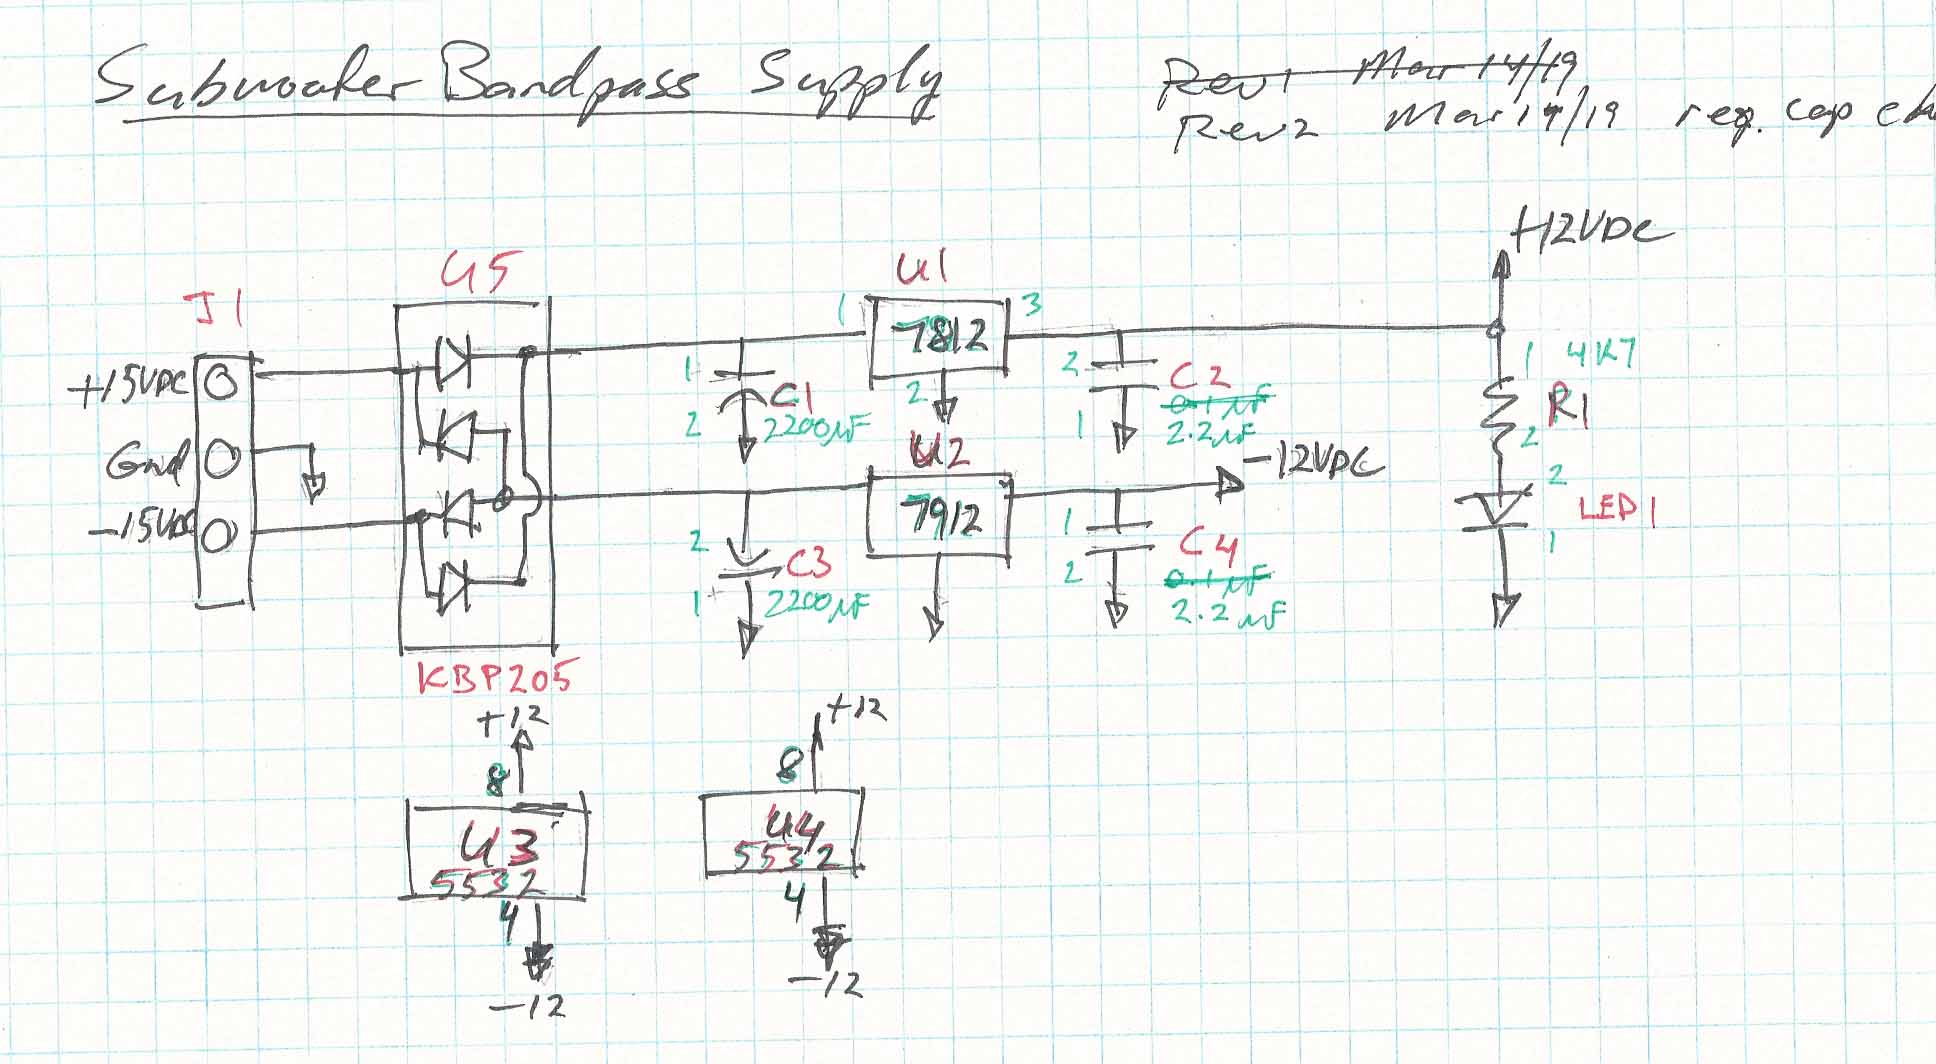 Subwoofer Bandpass Supply
Rev1 Mar 14/19
Rev2 Mar 19/19 reg. cap
+12VDC
U5
U1
J1
1
3
7812
+15VDC
1
2
2
1
4K7
C1
C2
R1
2
2200µF
1
0.1µF
2.2µF
2
U2
Gnd
-12VDC
2
-15VDC
7912
1
LED1
2
C3
2
C4
1
1
2200µF
0.1µF
2.2µF
KBP205
+12
+12
8
8
U3
5532
U4
5532
4
4
-12
-12